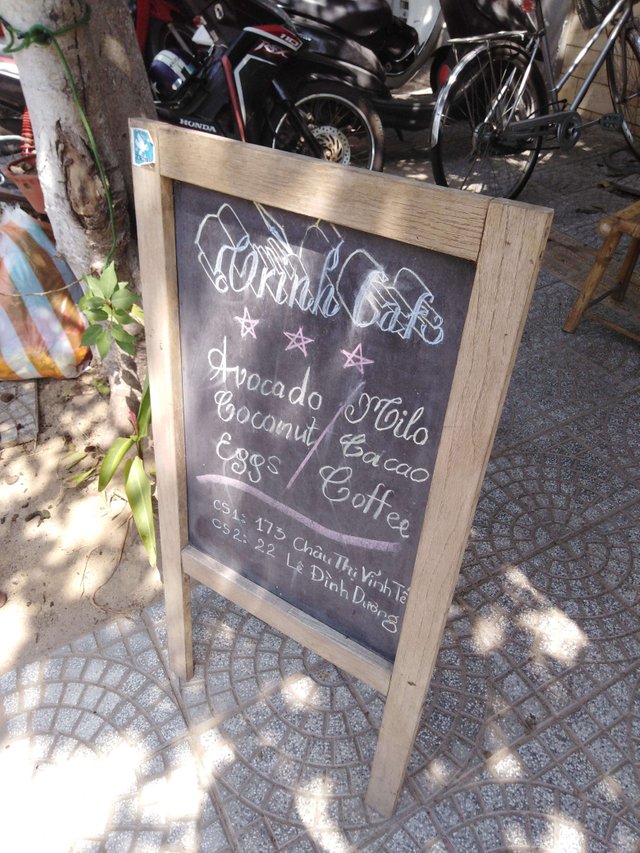 Trinh Cafe
Avocado / Milo
Coconut / Cacao
Eggs / Coffee
CS1: 173 Châu Thị Vĩnh Tế
CS2: 22 Lê Đình Dưỡng
HONDA
110